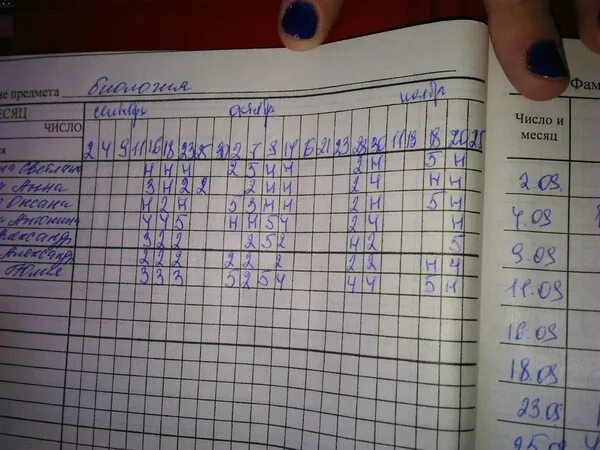 ие предмета биология
ЕСЯЦ сентябрь октябрь ноябрь
ЧИСЛО
2 4 9 11 16 18 23 25 30 2 7 9 14 16 21 23 28 30 11 13 18 20 25
на Светлана 4 4 4 2 5 4 4 2 4 5 4
а Анна 3 4 2 2 2 4 4 2 4 4 4
а Оксана 4 2 4 5 3 4 4 2 4 5 4
а Антонина 4 4 5 4 4 5 4 2 4 4
лександр 3 2 2 2 5 2 4 2 5
Александр 2 2 2 2 2 2 2 2 4 4
Юлия 3 3 3 5 2 5 4 4 4 5 4
Фам
Число и
месяц
2.09.
4.09
9.09
11.09
16.09
18.09
23.09
25.09